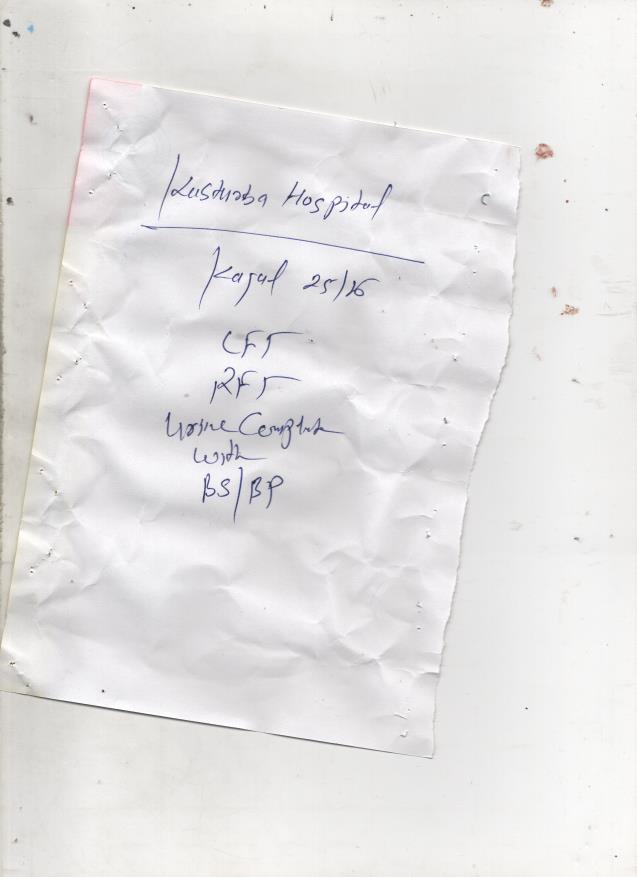 Kasturba Hospital
Kajal 25/26
LFT
RFT
Urine Complete
with
BS/BP